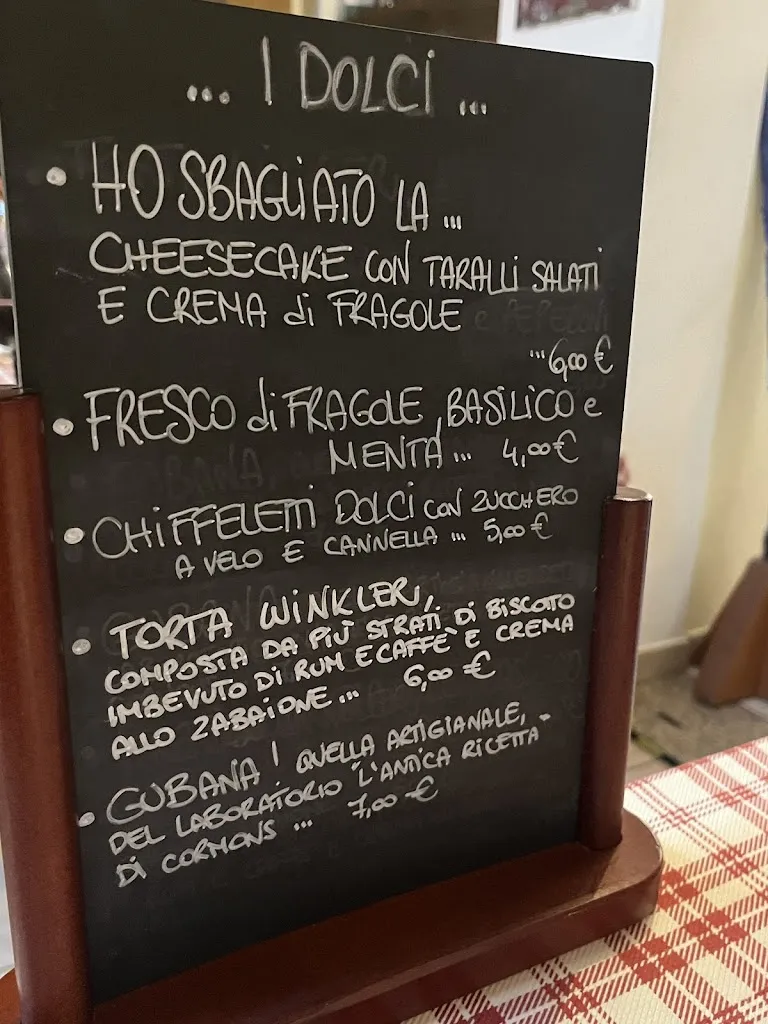 ... I DOLCI ...
• HO SBAGLIATO LA ...
CHEESECAKE CON TARALLI SALATI
E CREMA di FRAGOLE
...6,00 €
• FRESCO di FRAGOLE, BASILICO e
MENTA ... 4,00 €
• CHIFFELETTI DOLCI CON ZUCCHERO
A VELO E CANNELLA ... 5,00 €
• TORTA WINKLER,
COMPOSTA DA PIÙ STRATI DI BISCOTTO
IMBEVUTO DI RUM E CAFFÈ E CREMA
ALLO ZABAIONE ... 6,00 €
• GUBANA! QUELLA ARTIGIANALE,
DEL LABORATORIO "L'ANTICA RICETTA"
DI CORMONS ... 7,00 €